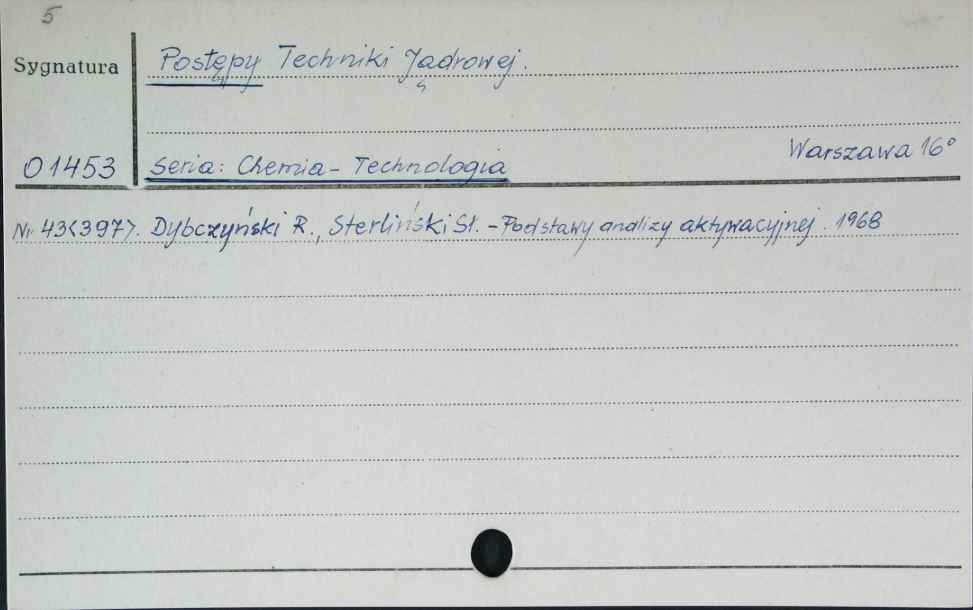 5
Sygnatura
Postępy Techniki Jądrowej.
Warszawa 16°
01453
Seria: Chemia - Technologia
Nr 43<397>. Dybczyński R., Sterliński St. - Podstawy analizy aktywacyjnej. 1968